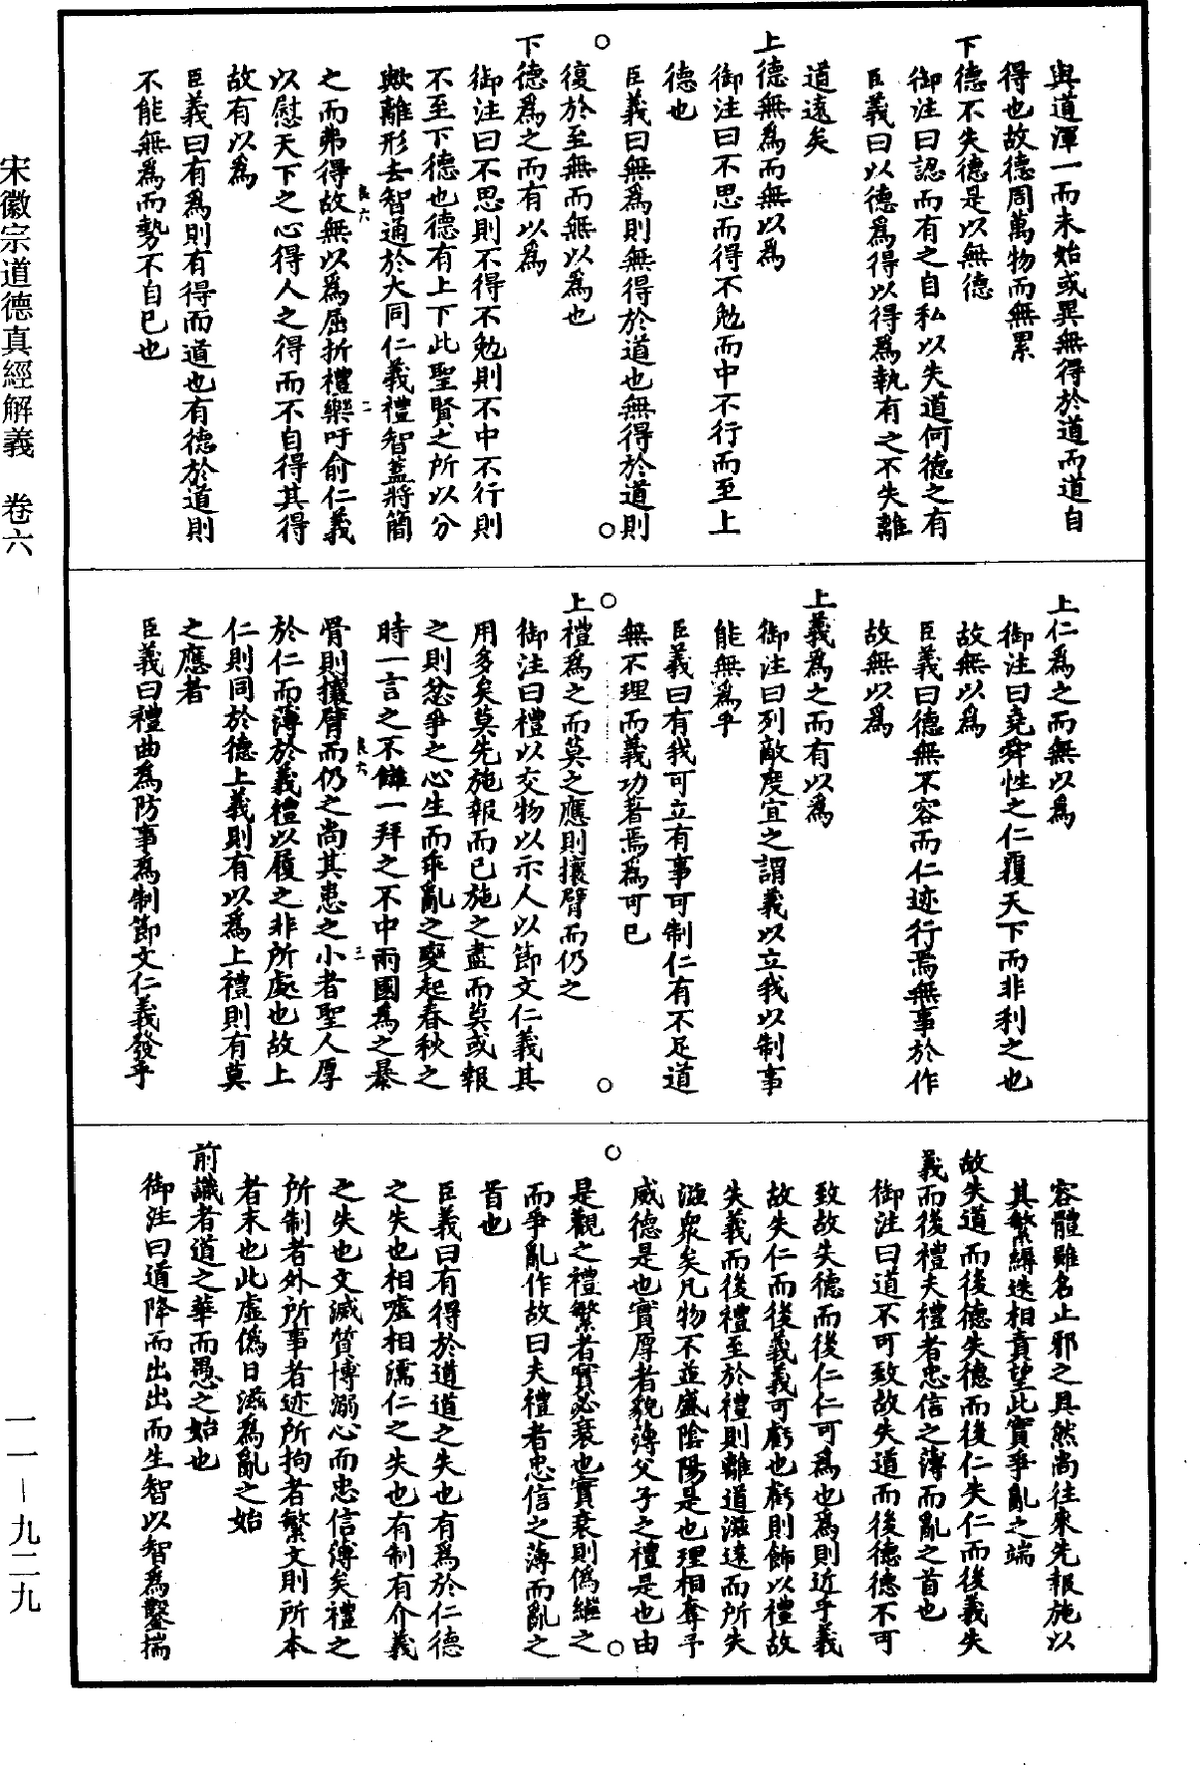 與道渾一而未始或異無得於道而道自
得也故德周萬物而無累
下德不失德是以無德
御注曰認而有之自私以失道何德之有
臣義曰以德為得以得為執有之不失離
道遠矣
上德無為而無以為
御注曰不思而得不勉而中不行而至上
德也
臣義曰無為則無得於道也無得於道則
復於至無而無以為也
下德為之而有以為
御注曰不思則不得不勉則不中不行則
不至下德也德有上下此聖賢之所以分
歟離形去智通於大同仁義禮智蓋將簡
之而弗得故無以為屈折禮樂吁俞仁義
以慰天下之心得人之得而不自得其得
故有以為
臣義曰有為則有得而道也有德於道則
不能無為而勢不自已也
上仁為之而無以為
御注曰堯舜性之仁覆天下而非利之也
故無以為
臣義曰德無不容而仁迹行焉無事於作
故無以為
上義為之而有以為
御注曰列敵度宜之謂義以立我以制事
能無為乎
臣義曰有我可立有事可制仁有不足道
無不理而義功著焉為可已
上禮為之而莫之應則攘臂而仍之
御注曰禮以交物以示人以節文仁義其
用多矣莫先施報而已施之盡而莫或報
之則忿爭之心生而乖亂之變起春秋之
時一言之不讎一拜之不中兩國為之暴
骨則攘臂而仍之尚其患之小者聖人厚
於仁而薄於義禮以履之非所處也故上
仁則同於德上義則有以為上禮則有莫
之應者
臣義曰禮曲為防事為制節文仁義發乎
容體雖名止邪之具然尚往來先報施以
其繁縟迭相責望此實爭亂之端
故失道而後德失德而後仁失仁而後義失
義而後禮夫禮者忠信之薄而亂之首也
御注曰道不可致故失道而後德德不可
致故失德而後仁仁可為也為則近乎義
故失仁而後義義可虧也虧則飾以禮故
失義而後禮至於禮則離道滋遠而所失
滋眾矣凡物不並盛陰陽是也理相奪予
威德是也實厚者貌薄父子之禮是也由
是觀之禮繁者實必衰也實衰則偽繼之
而爭亂作故曰夫禮者忠信之薄而亂之
首也
臣義曰有得於道道之失也有為於仁德
之失也相噓相濡仁之失也有制有介義
之失也文滅質博溺心而忠信薄矣禮之
所制者外所事者迹所拘者繁文則所本
者末也此虛偽日滋為亂之始
前識者道之華而愚之始也
御注曰道降而出出而生智以智為鑿揣
宋徽宗道德真經解義 卷六
一一—九二九